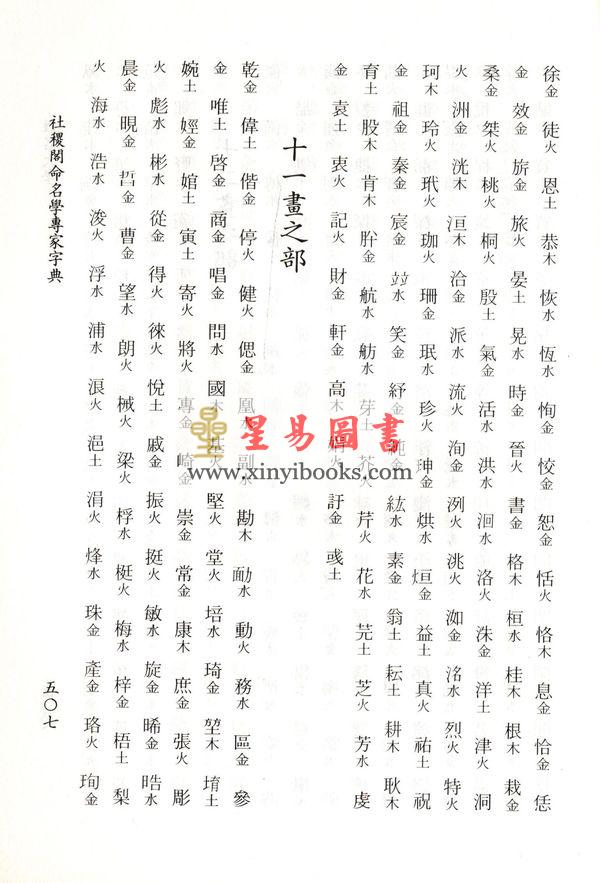 徐金 徒火 恩土 恭木 恢水 恆水 恂金 恔金 恕金 恬火 恪木 息金 恰金 恁
金 效金 旂金 旅火 晏土 晃水 時金 晉火 書金 格木 桓水 桂木 根木 栽金
桑金 桀木 桃火 桐火 殷土 氣金 活水 洪水 洄水 洛火 洙金 洋土 津火 洞
火 洲金 洸木 洹木 洽金 派水 流火 洵金 洌火 洮火 洳金 洺水 烈火 特火
珂木 玲火 玳火 珈火 珊金 珉水 珍火 珅金 烘水 烜金 益土 真火 祐土 祝
金 祖金 秦金 宸金 竝水 笑金 紓金 純金 紘水 素金 翁土 耘土 耕木 耿木
育土 股木 肯木 肸金 航水 舫水 芽土 芥火 芹火 花水 芫土 芝火 芳水 虔
金 袁土 衷火 記火 財金 軒金 高木 娟火 訏金 彧土
十一畫之部
乾金 偉土 偕金 停火 健火 偲金 凰水 副水 勘木 勔水 動火 務水 區金 參
金 唯土 啓金 商金 唱金 問水 國木 基火 堅火 堂火 培水 埼金 堃木 堉土
婉土 婭金 婠土 寅土 寄火 將火 專金 崎金 崇金 常金 康木 庶金 張火 彫
火 彪水 彬水 從金 得火 徠火 悅土 戚金 振火 挺火 敏水 旋金 晞金 晧水
晨金 晛金 晢金 曹金 望水 朗火 械火 梁火 桴水 梃火 梅水 梓金 梧土 梨
火 海水 浩水 浚火 浮水 浦水 浪火 浥土 涓火 烽水 珠金 產金 珞火 珣金
社稷閣命名學專家字典
五〇七
星易圖書
www.xinyibooks.com